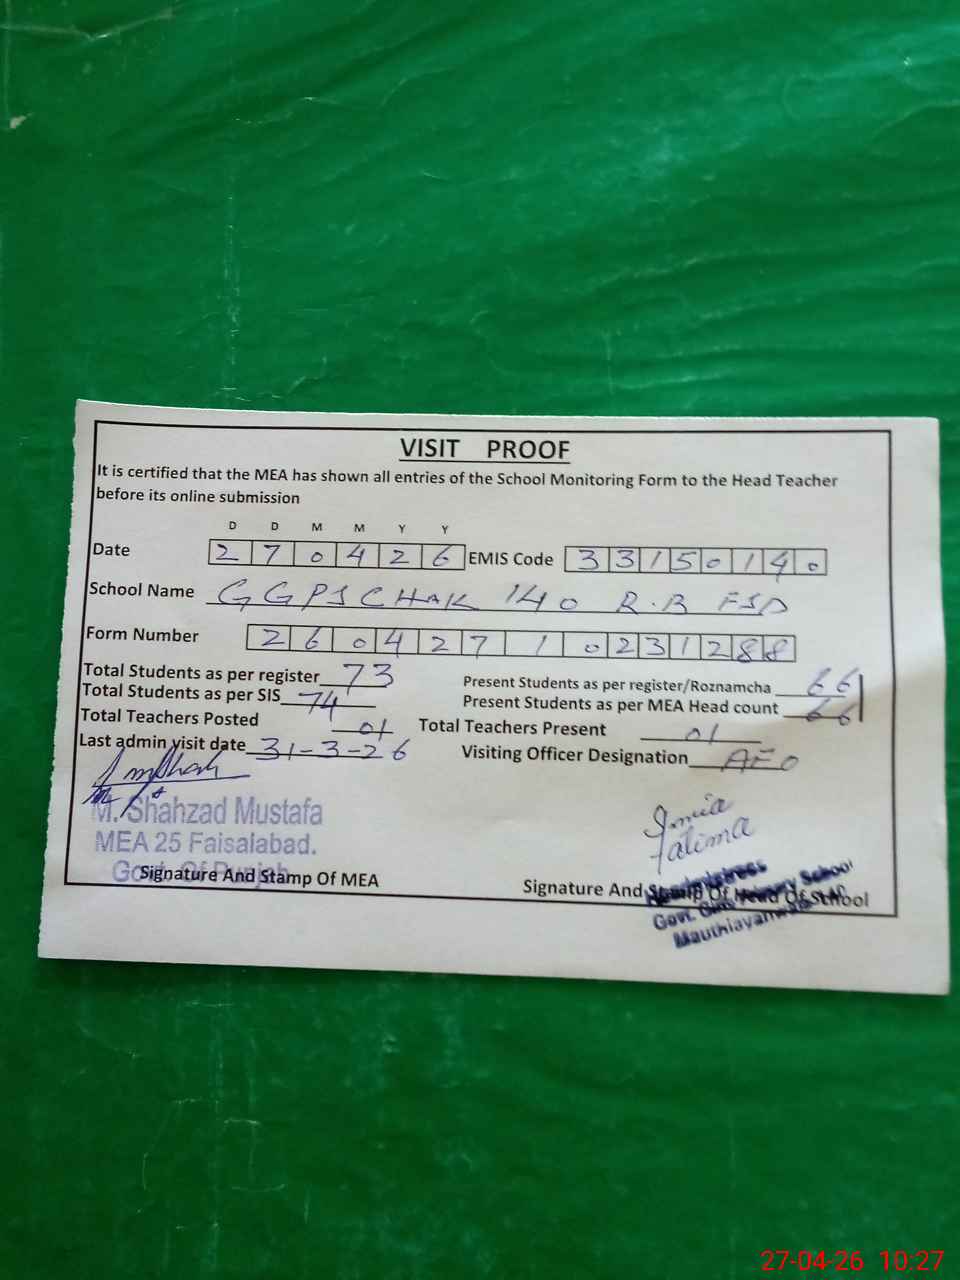 VISIT PROOF
It is certified that the MEA has shown all entries of the School Monitoring Form to the Head Teacher
before its online submission
D D M M Y Y
Date 2 7 0 4 2 6 EMIS Code 3 3 1 5 0 1 4 0
School Name GGPS CHAK 140 R.B FSD
Form Number 2 6 0 4 2 7 1 0 2 3 1 2 8 8
Total Students as per register 73 Present Students as per register/Roznamcha 66
Total Students as per SIS 74 Present Students as per MEA Head count 66
Total Teachers Posted 01 Total Teachers Present 01
Last admin visit date 31-3-26 Visiting Officer Designation AEO
M. Shahzad Mustafa
MEA 25 Faisalabad.
Govt. Of Punjab
Signature And Stamp Of MEA
Fatima
Signature And Stamp Of Head Of School
Govt. Girls Primary School
27-04-26 10:27